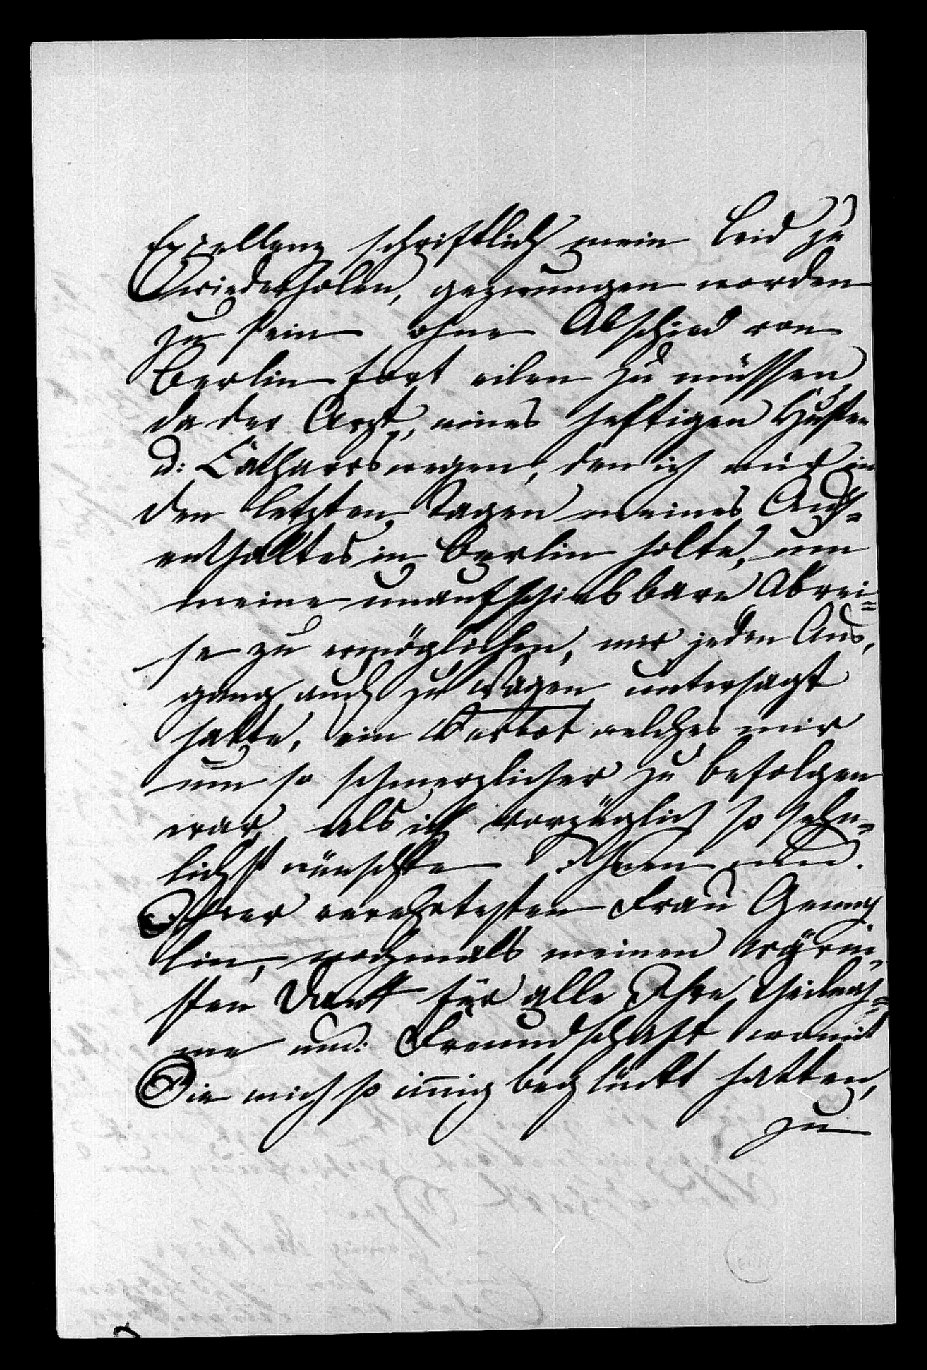 Exzellenz schriftlich mein Leid zu
wiederholen, gezwungen worden
zu sein ohne Abschied von
Berlin fort eilen zu müssen,
da der Arzt, eines heftigen Husten
u: Catharrs wegen, den ich mir in
den letzten Tagen meines Auf-
enthaltes in Berlin holte, um
meine unaufschiebbare Abrei-
se zu ermöglichen, mir jeden Aus-
gang auch zu Wagen untersagt
hatte, ein Verbot welches mir
um so schmerzlicher zu befolgen
war als ich vorzüglich so sehn-
lichst wünschte Ihnen und
Ihrer verehrtesten Frau Gemah-
lin, nochmals meinen
sten Dank für alle Ihre Theilnah-
me und Freundschaft womit
Sie mich so innig beglückt hatten,
zu